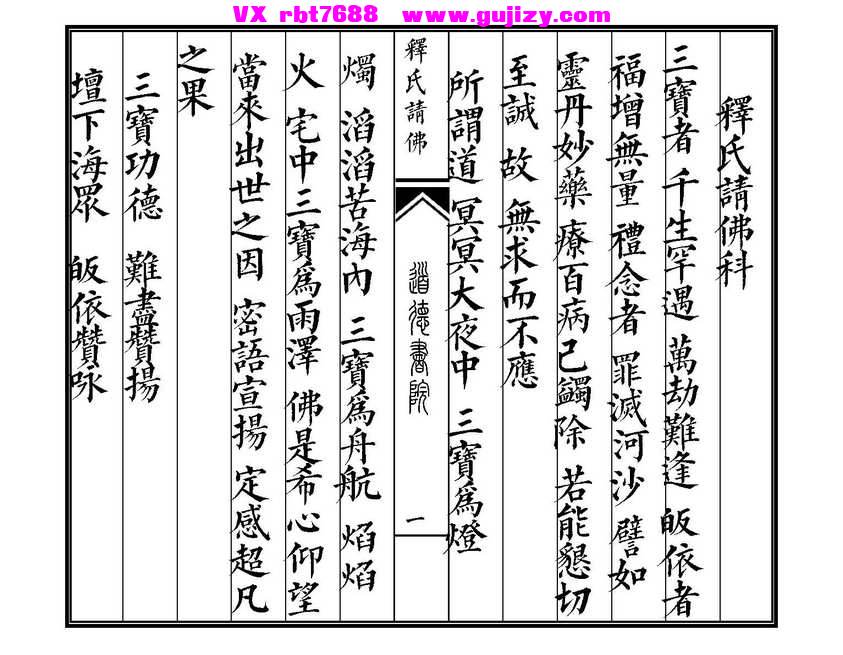 VX rbt7688 www.gujizy.com
釋氏請佛科
三寶者 千生罕遇 萬劫難逢 皈依者
福增無量 禮念者 罪滅河沙 譬如
靈丹妙藥 療百病已蠲除 若能懇切
至誠 故 無求而不應
所謂道 冥冥大夜中 三寶爲燈
釋氏請佛
道德書院
一
燭 滔滔苦海內 三寶爲舟航 焰焰
火 宅中三寶爲雨澤 佛是希心仰望
當來出世之因 密語宣揚 定感超凡
之果
三寶功德 難盡贊揚
壇下海眾 皈依贊咏